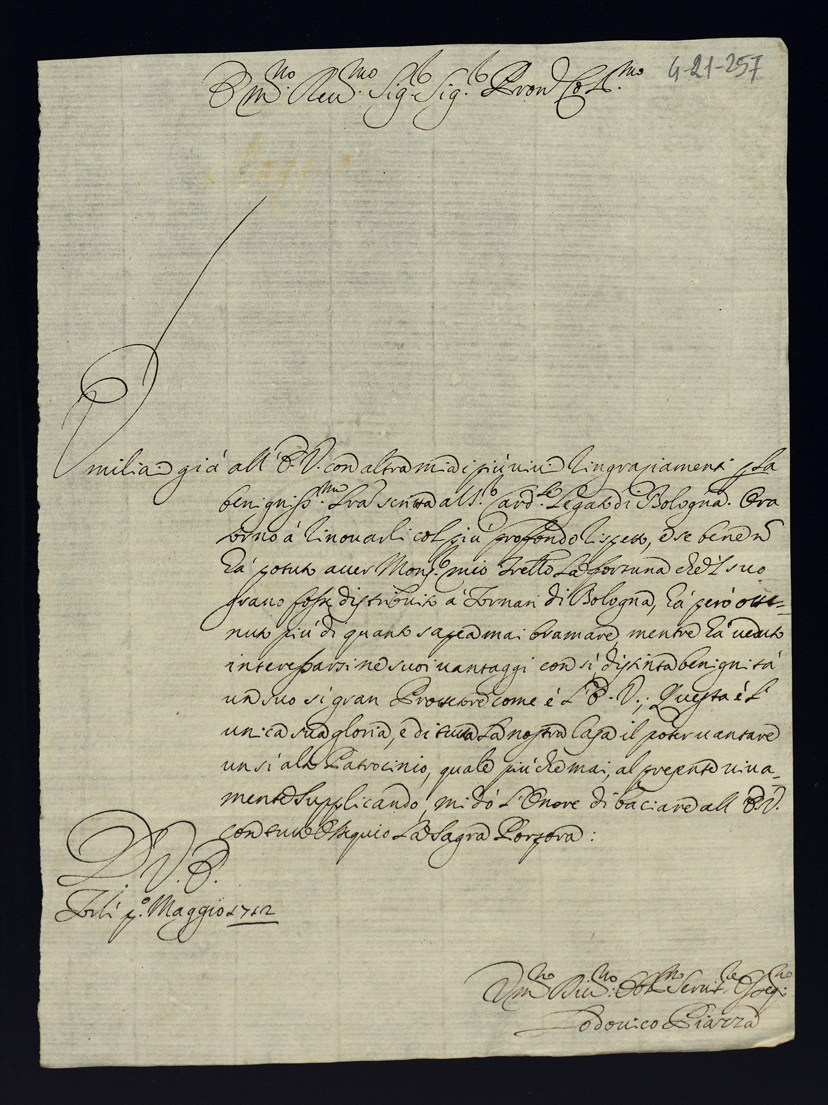 4-21-257
Em.mo Rev.mo Sig.r Sig.r Pron Col.mo
Umiliai già all' E. V. con altra mia i più vivi ringraziamenti p la
benigniss.ma Lra scritta al S.r Card.le Legato di Bologna. Ora
torno à rinovarli col più profondo rispetto, e se bene ñ
hà potuto aver Mons.r mio Frello la fortuna che 'l suo
grano fosse distribuito à Fornari di Bologna, hà però otte-
nuto più di quanto sapea mai bramare, mentre hà veduto
interessarsi ne suoi vantaggi con sì distinta benignità
un suo sì gran Protettore come è l' E. V.; Questa è l'
unica sua gloria, e di tutta la nostra Casa il poter vantare
un sì alto Patrocinio, quale più che mai, al presente viva-
mente supplicando, mi dò l' Onore di baciare all' E. V.
con tutto Ossequio la Sagra Porpora:
D. V. E.
Forlì p.o Maggio 1712
Vm.mo Riv.mo Obl.mo Servit.re Osseq.mo
Lodovico Piazza